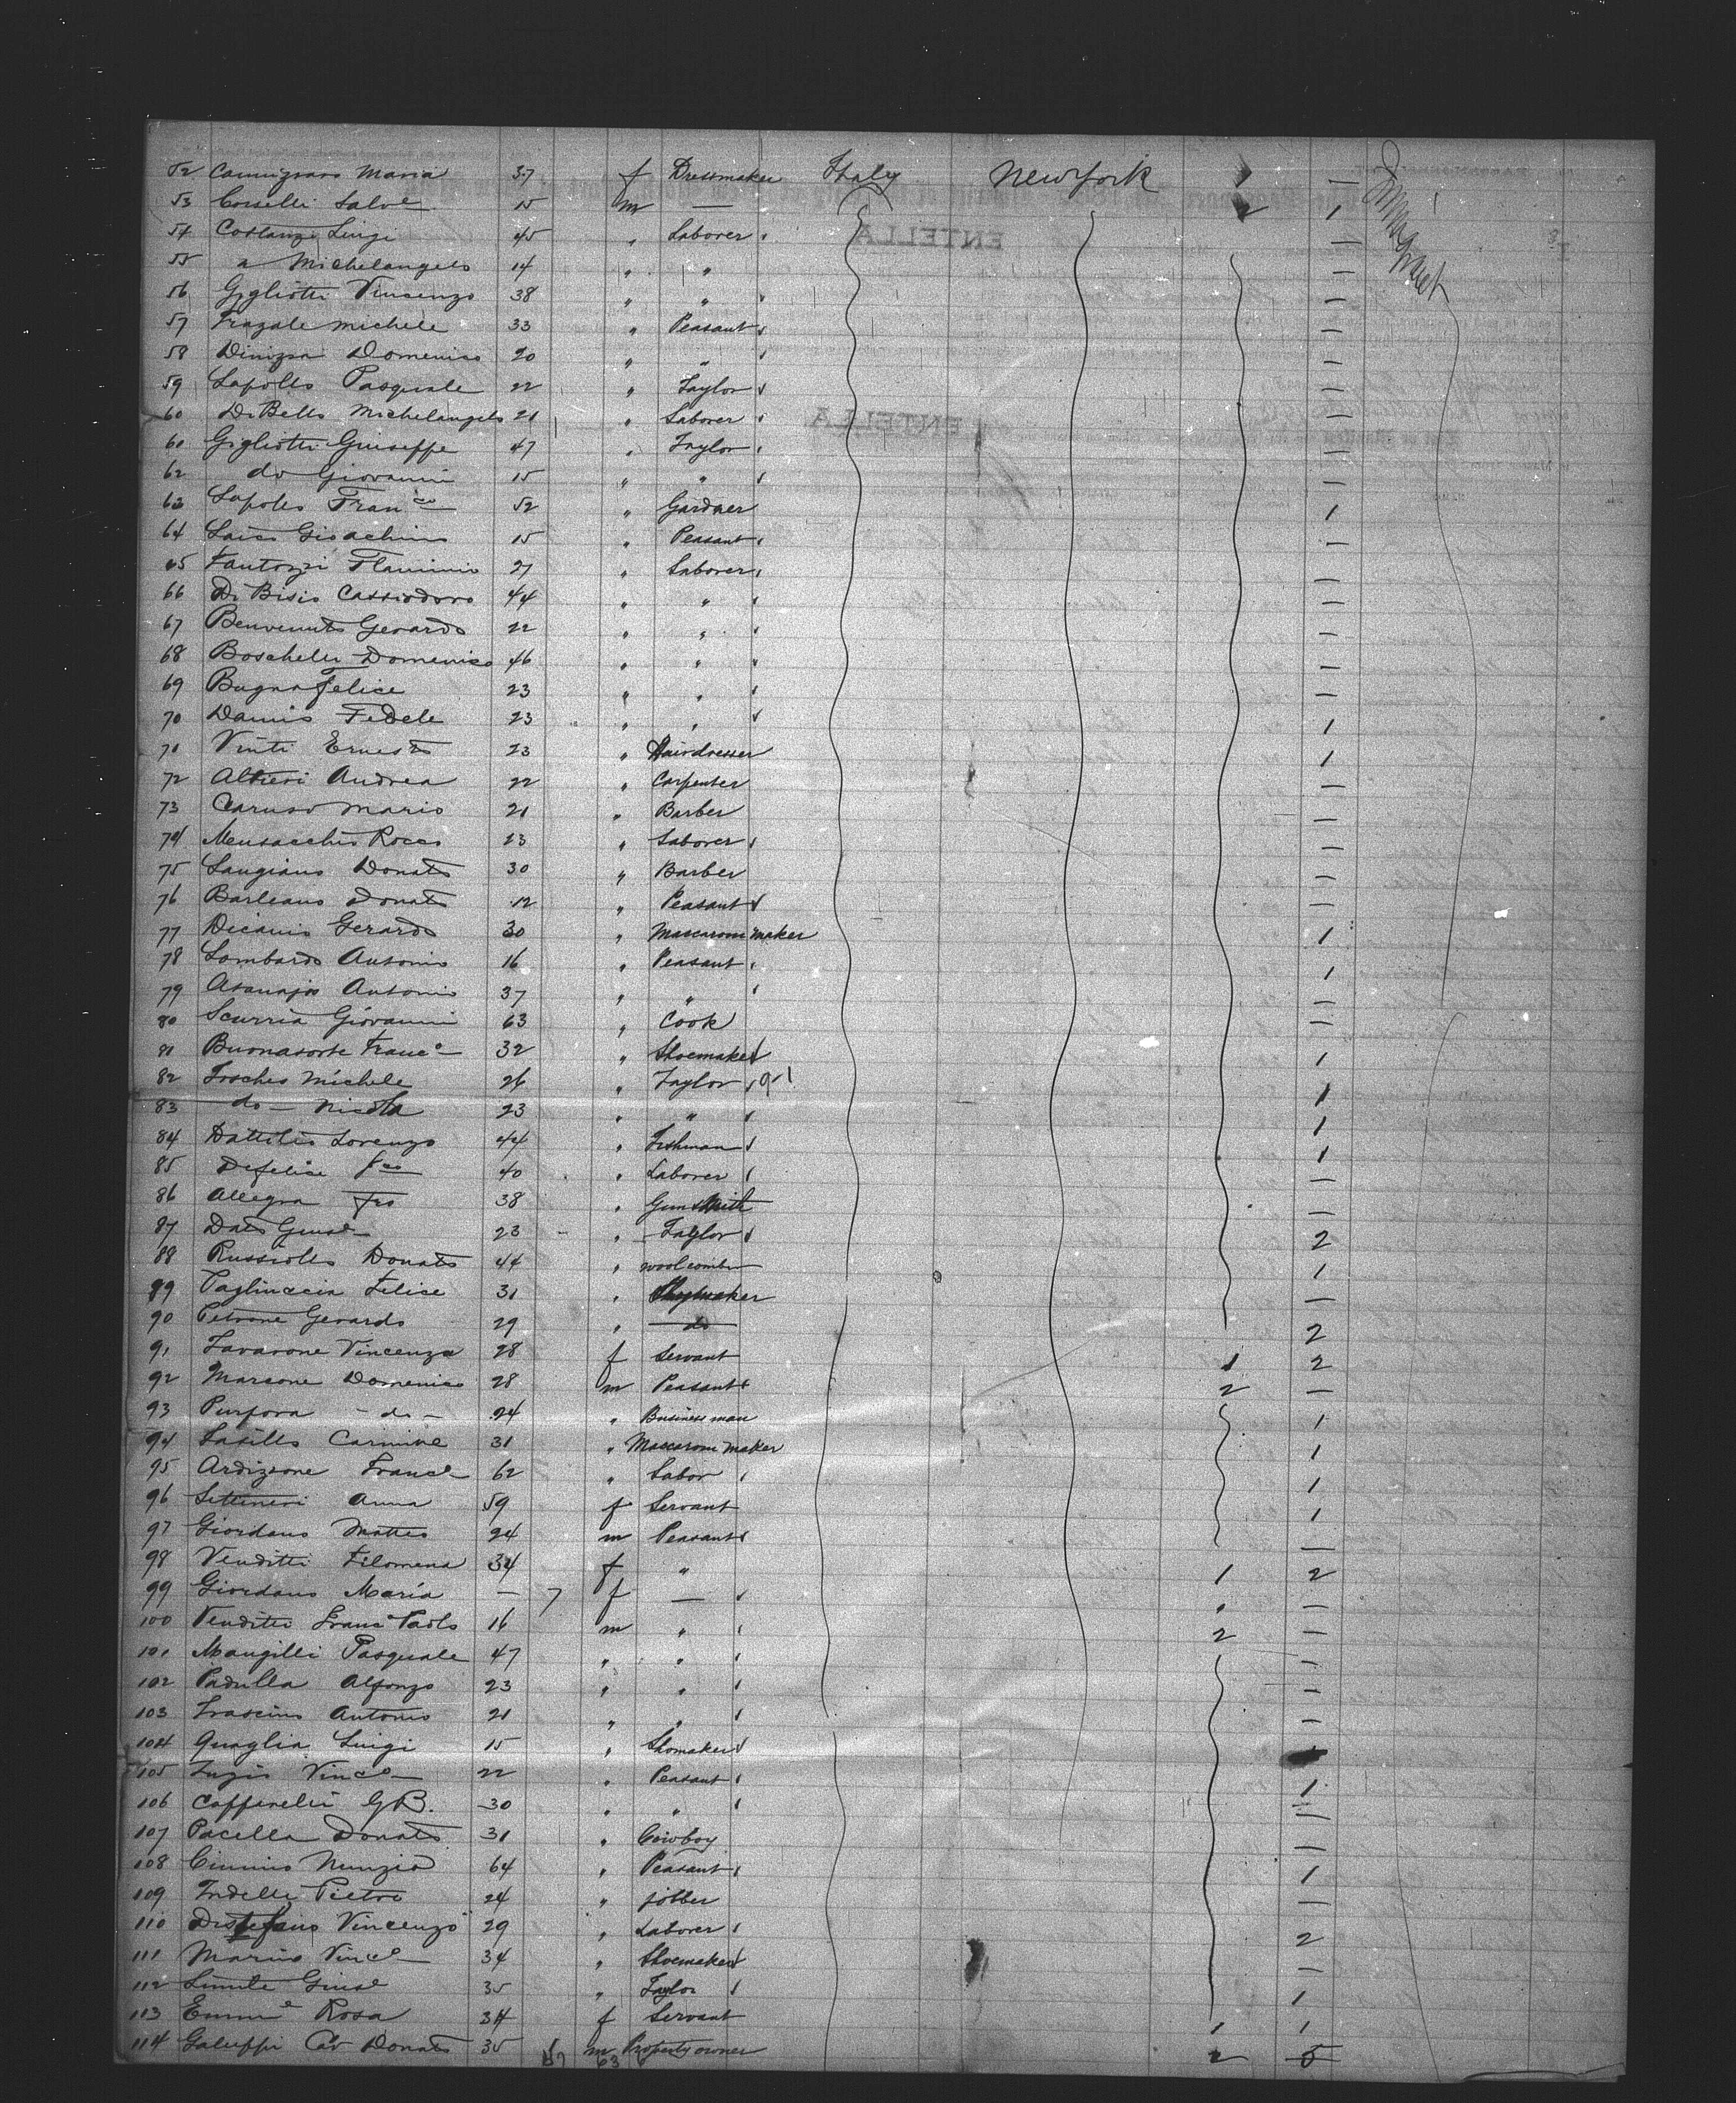 52 Cannizzaro Maria 37 f Dressmaker Italy New york 1 —
53 Corselli Salv.e 15 m — 2 1
54 Costanzi Luigi 45 " Laborer —
55 a Michelangelo 14 " " —
56 Gigliotti Vincenzo 38 " " —
57 Frazale michele 33 " Peasant —
58 Domenico 20 " " —
59 Lapolla Pasquale 22 " Taylor —
60 Di Bello Michelangelo 21 " Laborer —
60 Gigliotti Giuseppe 47 " Taylor —
62 do Giovanni 15 " " —
63 Lapolla Fran.co 52 " Gardner 1
64 Gioachino 15 " Peasant —
65 Fantozzi Flaminio 27 " Laborer —
66 Di Bisio Cassiodoro 44 " " —
67 Benvenuto Gerardo 22 " " —
68 Boschelli Domenico 46 " " —
69 Bugna Felice 23 " " —
70 Damis Fedele 23 " " 1
71 Vinti Ernesto 23 " Hairdresser 1
72 Altieri Andrea 22 " Carpenter —
73 Caruso Mario 21 " Barber —
74 Rocco 23 " Laborer —
75 Langiano Donato 30 " Barber —
76 Barleano Donato 12 " Peasant —
77 Dicanio Gerardo 30 " Maccaroni maker 1
78 Lombardo Antonio 16 " Peasant 1
79 Antonio 37 " " —
80 Scurria Giovanni 63 " Cook —
81 Buonasorte Franc.o 32 " Shoemaker 1
82 Michele 26 " Taylor 1
83 do — Nicola 23 " " 1
84 Dattilio Lorenzo 44 " Fishman 1
85 Defelice 40 " Laborer —
86 Allegra Fro 38 " Gunsmith —
87 Dato Gius.e 23 " Taylor 2
88 Russiello Donato 44 " woolcomber 1
89 Pagliuccia Felice 31 " —
90 Petrone Gerardo 29 " do 2
91 Favarone Vincenza 28 f Servant 1 2
92 Marcone Domenico 28 m Peasant 2 —
93 Purfora — do — 24 " Business man 1
94 Lasillo Carmine 31 " Maccaroni maker 1
95 Ardizzone Franc.o 62 " Labor 1
96 Settineri Anna 59 f Servant 1
97 Giordano Matteo 24 m Peasant —
98 Venditti Filomena 34 f " 1 2
99 Giordano Maria — 7 f — —
100 Venditti Franc.o Paolo 16 m " 2 —
101 Mangilli Pasquale 47 " " —
102 Padulla Alfonzo 23 " " —
103 Frascino Antonio 21 " " —
104 Quaglia Luigi 15 " Shomaker
105 Vinc.o 22 " Peasant 1
106 Cafferelli G B. 30 " " —
107 Pacella Donato 31 " Cowboy —
108 Nunzio 64 " Peasant 1
109 Indelli Pietro 24 " jobber —
110 Distefano Vincenzo 29 " Laborer 2
111 Marino Vinc.o 34 " Shoemaker —
112 Gius.e 35 " Taylor 1
113 Rosa 34 f Servant 1 1
114 Galuppi Cav Donato 35 m Property owner 2 5
63
ENTELLA
ENTELLA